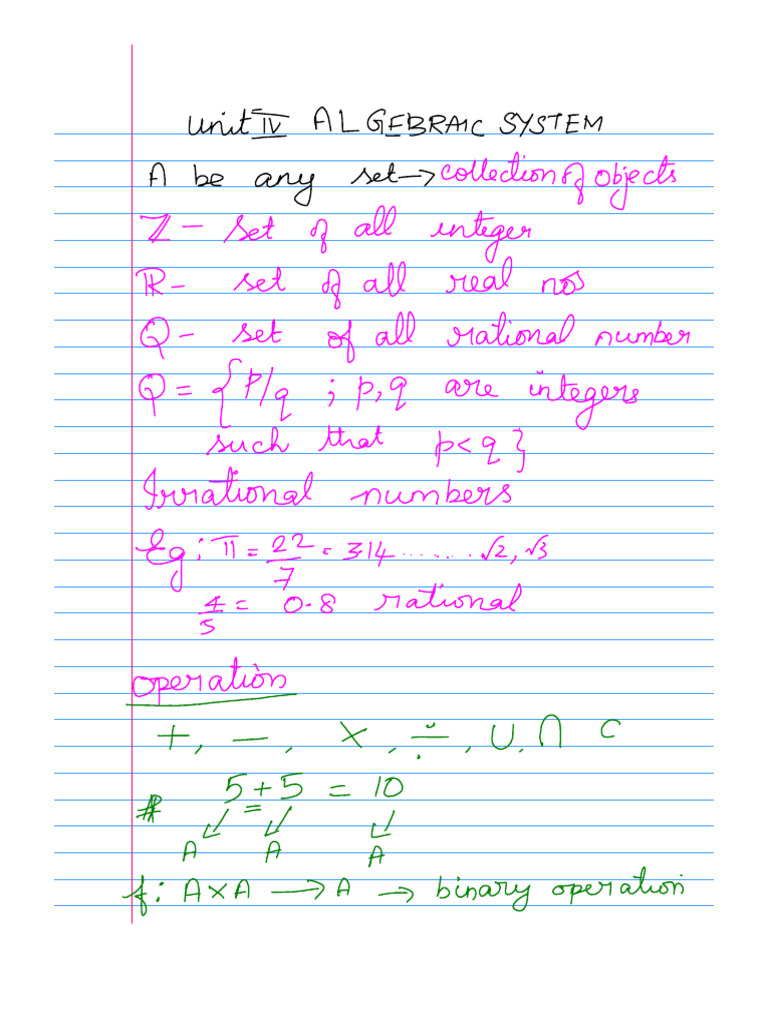 Unit IV ALGEBRAIC SYSTEM
A be any set → collection of objects
ℤ - set of all integer
ℝ - set of all real nos
Q - set of all rational number
Q = { p/q ; p, q are integers
such that p < q }
Irrational numbers
Eg: π = 22/7 = 3.14 ....... √2, √3
4/5 = 0.8 rational
operation
+, -, ×, ÷, ∪, ∩ C
# 5 + 5 = 10
A A A
f: A × A → A → binary operation